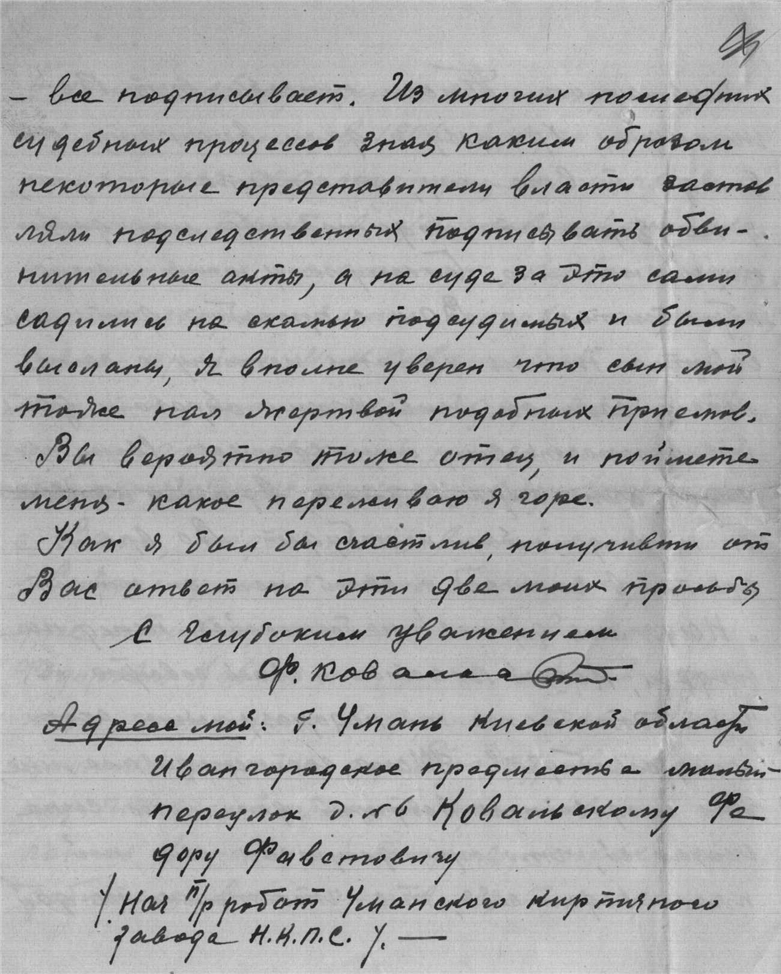 – все подписывает. Из многих последних
судебных процессов зная каким образом
некоторые представители власти застав
ляли подследственных подписывать обви-
нительные акты, а на суде за это сами
садились на скамью подсудимых и были
высланы, я вполне уверен что сын мой
тоже пал жертвой подобных приемов.
Вы вероятно тоже отец, и поймете
меня - какое переживаю я горе.
Как я был бы счастлив, получивши от
Вас ответ на эти две моих просьбы
С глубоким уважением
Ф. Ковальс
Адресс мой: г. Умань Киевской области
Ивангородское предместье малый
переулок д. №6 Ковальскому Фе
дору Фавстовичу
/ Нач п/р работ Уманского кирпичного
завода Н.К.П.С. /. —